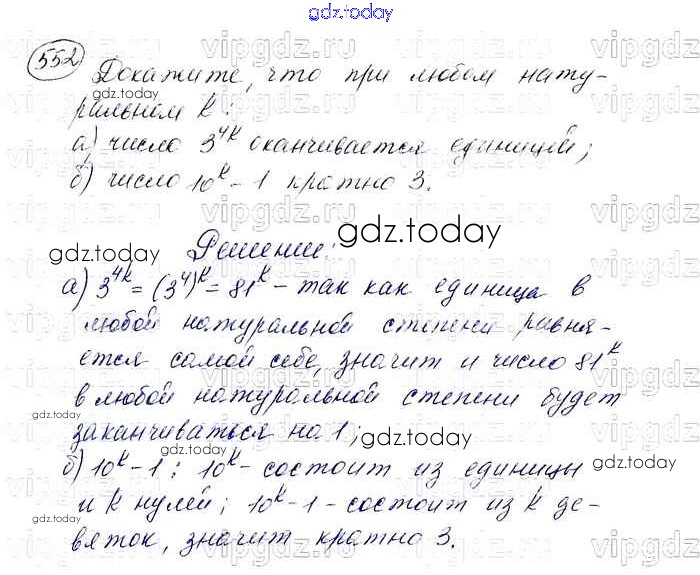 gdz.today
552 Докажите, что при любом нату-
ральном k:
а) число 3^4k оканчивается единицей;
б) число 10^k - 1 кратно 3.
Решение:
а) 3^4k = (3^4)^k = 81^k - так как единица в
любой натуральной степени равня-
ется самой себе, значит и число 81^k
в любой натуральной степени будет
заканчиваться на 1;
б) 10^k - 1 : 10^k - состоит из единицы
и k нулей; 10^k - 1 - состоит из k де-
вяток, значит кратно 3.
gdz.today
vipgdz.ru